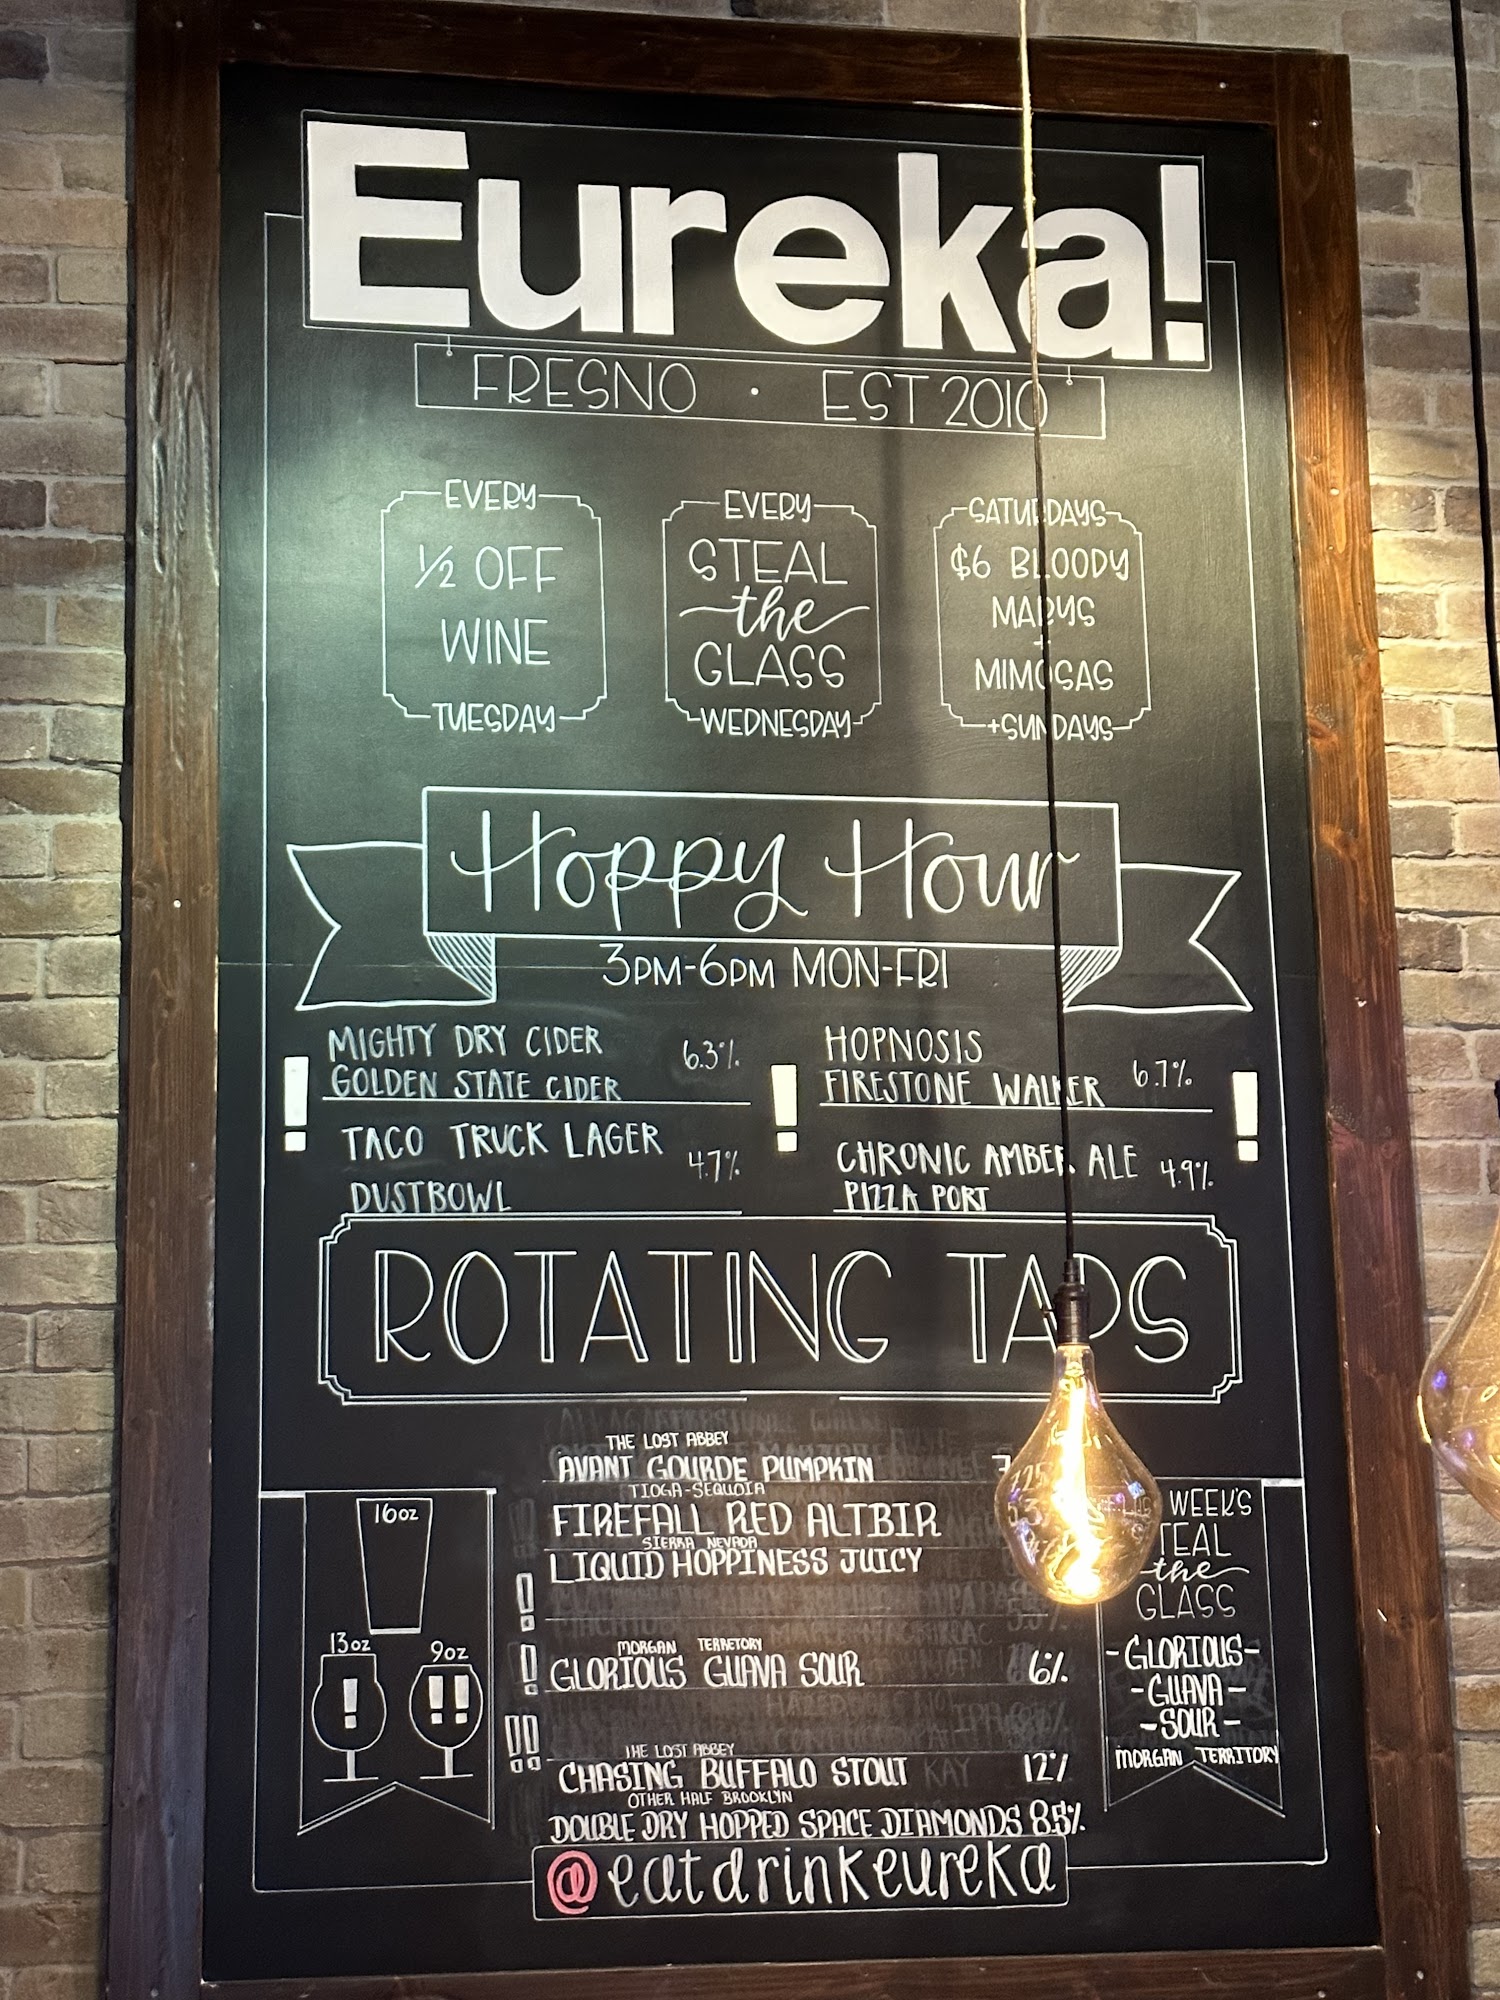 Eureka!
FRESNO · EST 2010
EVERY
1/2 OFF
WINE
TUESDAY
EVERY
STEAL
the
GLASS
WEDNESDAY
SATURDAYS
$6 BLOODY
MARYS
+
MIMOSAS
+SUNDAYS
Hoppy Hour
3PM-6PM MON-FRI
MIGHTY DRY CIDER 6.3%
GOLDEN STATE CIDER
TACO TRUCK LAGER 4.7%
DUSTBOWL
HOPNOSIS
FIRESTONE WALKER 6.7%
CHRONIC AMBER ALE 4.9%
PIZZA PORT
ROTATING TAPS
16oz
13oz
!
9oz
!!
THE LOST ABBEY
AVANT GOURDE PUMPKIN
TIOGA-SEQUOIA
FIREFALL RED ALTBIR
SIERRA NEVADA
LIQUID HOPPINESS JUICY
!
MORGAN TERRETORY
! GLORIOUS GUAVA SOUR 6%
!!
THE LOST ABBEY
CHASING BUFFALO STOUT 12%
OTHER HALF BROOKLYN
DOUBLE DRY HOPPED SPACE DIAMONDS 8.5%
WEEK'S
TEAL
the
GLASS
-GLORIOUS-
-GUAVA-
-SOUR-
MORGAN TERRITORY
@eatdrinkeureka